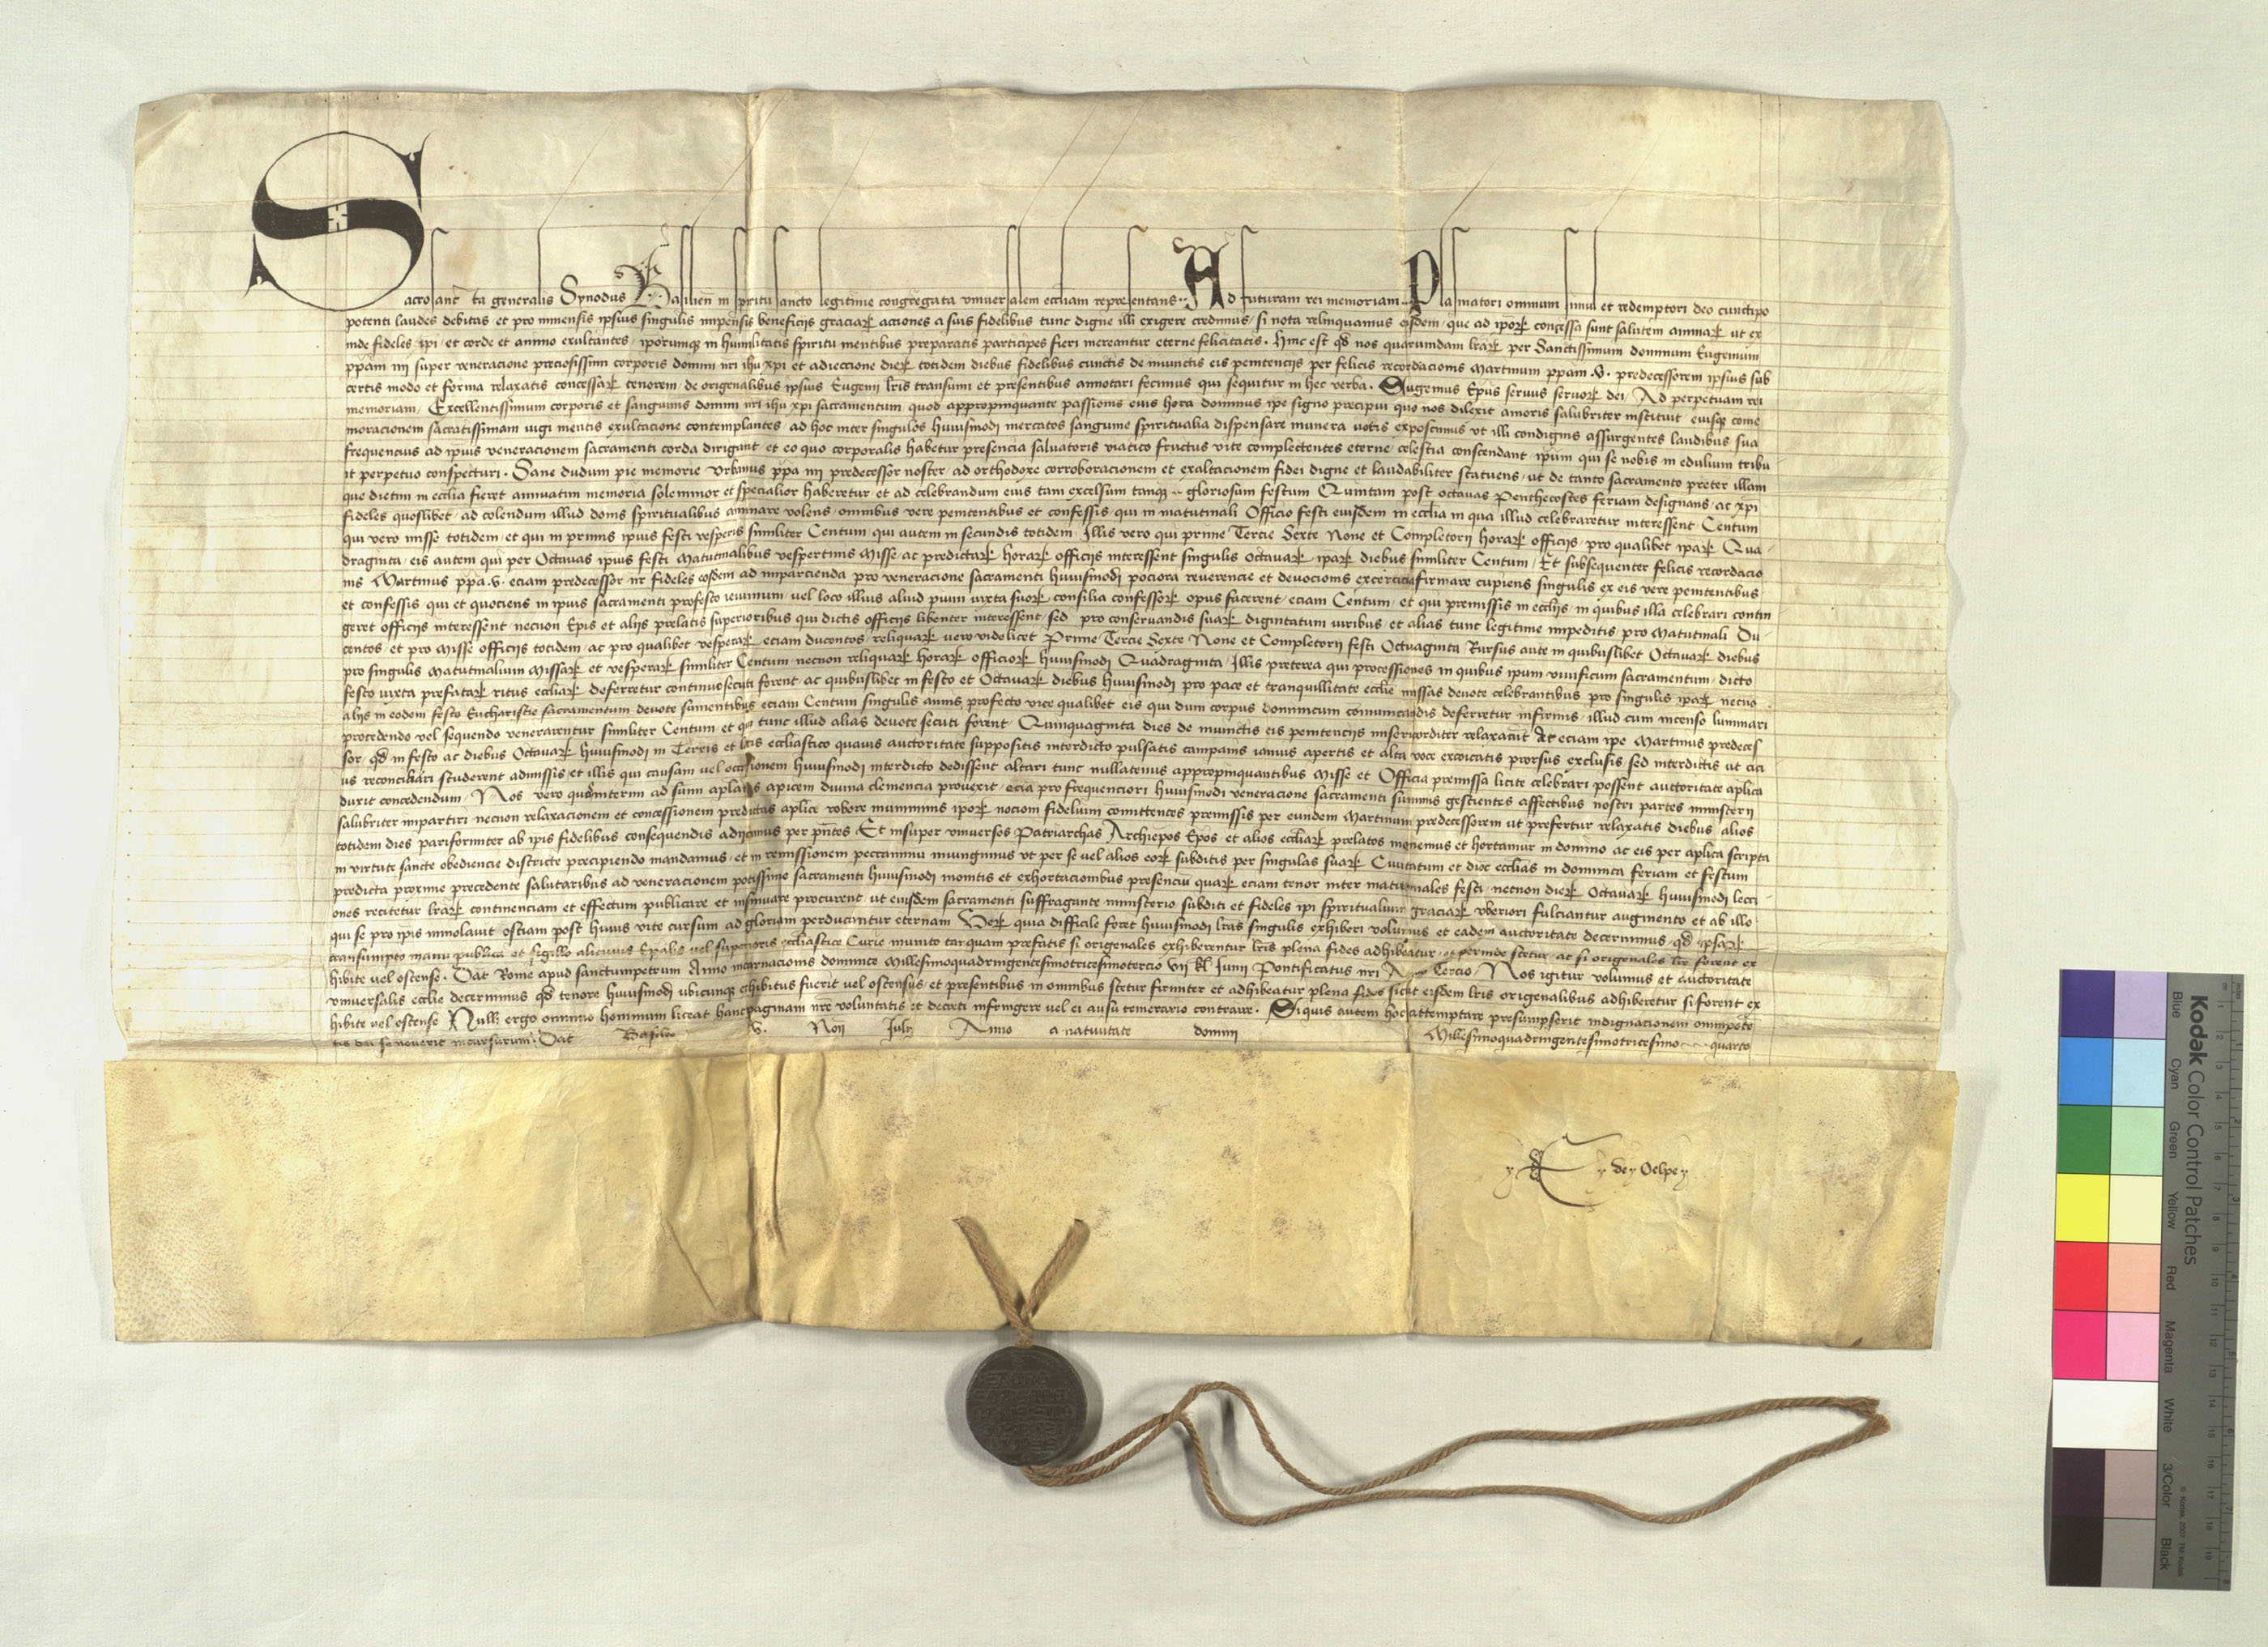 Sacrosancta generalis Synodus Basilien in spiritu sancto legitime congregata universalem eccliam representans Ad futuram rei memoriam Plasmatori omnium simul et redemptori deo cunctipo
potenti laudes debitas et pro inmensis ipsius singulis impensis beneficijs graciarꝝ acciones a suis fidelibus tunc digne illi exigere credimus si nota relinquamus eisdem que ad ipsorꝝ concessa sunt salutem animarꝝ ut ex
inde fideles ipsi et corde et animo exultantes ipsorumque in humilitatis spiritu mentibus preparatis participes fieri mereantur eterne felicitatis. Hinc est qd nos quarumdam lrarꝝ per Sanctissimum dominum Eugenium
ppam iiij super veneracione preciosissimi corporis domini nri ihu xpi et adieccione dierꝝ totidem diebus fidelibus cunctis de iniunctis eis penitencijs per felicis recordacionis Martinum ppam .V. predecessorem ipsius sub
certis modo et forma relaxatis concessarꝝ tenorem de origenalibus ipsius Eugenij lris transumi et presentibus annotari fecimus qui sequitur in hec verba. Eugenius Epus servus servorꝝ dei Ad perpetuam rei
memoriam Excellentissimum corporis et sanguinis domini nri ihu xpi sacramentum quod appropinquante passionis eius hora dominus ipse signo precipui quo nos dilexit amoris salubriter instituit eiusque come
moracionem sacratissimam iugi mentis exultacione contemplantes ad hoc inter singulos huiusmodi mercatos sanguine spiritualia dispensare munera votis exposcimus ut illi condignis assurgentes laudibus sua
frequencius ad ipsius veneracionem sacramenti corda dirigant et eo quo corporalis habetur presencia salvatoris viatico fructus vite complectentes eterne celestia conscendant ipsum qui se nobis in edulium tribu
it perpetuo conspecturi. Sane dudum pie memorie Urbanus ppa iiij predecessor noster ad orthodoxe corroboracionem et exaltacionem fidei digne et laudabiliter statuens ut de tanto sacramento preter illam
que dietim in ecclia fieret annuatim memoria solennior et specialior haberetur et ad celebrandum eius tam excelsum tanque gloriosum festum Quintam post octavas Penthecostes feriam designans ac xpi
fideles quoslibet ad colendum illud donis spiritualibus animare volens omnibus vere penitentibus et confessis qui in matutinali Officio festi eiusdem in ecclia in qua illud celebraretur interessent Centum
qui vero misse totidem et qui in primis ipsius festi vesperis similiter Centum qui autem in secundis totidem Illis vero qui prime Tercie Sexte None et Completorij horarꝝ officijs pro qualibet iparꝝ Qua
draginta eis autem qui per Octavas ipsius festi Matutinalibus vespertinis Misse ac predictarꝝ horarꝝ officijs interessent singulis octavarꝝ iparꝝ diebus similiter Centum Et subsequenter felicis recordacio
nis Martinus ppa .V. eciam predecessor nr fideles eosdem ad imparcienda pro veneracione sacramenti huiusmodi pociora reverencie et devocionis exercicia firmare cupiens singulis ex eis vere penitentibus
et confessis qui et quociens in ipsius sacramenti profesto ieiunium vel loco illius aliud pium iuxta suorꝝ consilia confessorꝝ opus facerent eciam Centum et qui premissis in ecclijs in quibus illa celebrari contin
geret officijs interessent necnon Epis et alijs prelatis superioribus qui dictis officijs libenter interessent sed pro conservandis suarꝝ dignitatum iuribus et alias tunc legitime impeditis pro Matutinali Du
centos et pro Misse officijs totidem ac pro qualibet vesperarꝝ eciam ducentos reliquarꝝ vero videlicet Prime Tercie Sexte None et Completorij festi Octuaginta Rursus aute in quibuslibet Octavarꝝ diebus
pro singulis Matutinalium Missarꝝ et vesperarꝝ similiter Centum necnon reliquarꝝ horarꝝ officiorꝝ huiusmodi Quadraginta Illis preterea qui processiones in quibus ipsum vivificum sacramentum dicto
festo iuxta prefatarꝝ ritus eccliarꝝ deferretur continuo secuti forent ac quibuslibet in festo et Octavarꝝ diebus huiusmodi pro pace et tranquillitate ecclie missas devote celebrantibus pro singulis iparꝝ necno
alijs in eodem festo Eucharistie sacramentum devote sumentibus eciam Centum singulis annis profecto vice qualibet eis qui dum corpus dominicum comunicandis deferretur infirmis illud cum incenso luminari
procedendo vel sequendo venerarentur similiter Centum et qui tunc illud alias devote secuti forent Quinquaginta dies de iniunctis eis penitencijs misericorditer relaxarunt Ac eciam ipse Martinus predeces
sor qd in festo ac diebus Octavarꝝ huiusmodi in Terris et locis eccliastico quavis auctoritate suppositis interdicto pulsatis campanis ianuis apertis et alta voce excoicatis prorsus exclusis sed interdictis ut cici
us reconciliari studerent admissis et illis qui causam vel occasionem huiusmodi interdicto dedissent altari tunc nullatenus appropinquantibus Misse et Officia premissa licite celebrari possent auctoritate aplica
duxit concedendum Nos vero quos interim ad sumi aplatus apicem divina clemencia provexit ecia pro frequenciori huiusmodi veneracione sacramenti summis gestientes affectibus nostri partes ministerij
salubriter impartiri necnon relaxacionem et concessionem predictas aplice robore muniminis iporꝝ nocioni fidelium comittentes premissis per eundem Martinum predecessorem ut prefertur relaxatis diebus alios
totidem dies pariformiter ab ipsis fidelibus consequendis adijcimus per pntes Et insuper universos Patriarchas Archiepos Epos et alios eccliarꝝ prelatos monemus et hortamur in domino ac eis per aplica scripta
in virtute sancte obediencie districte precipiendo mandamus et in remissionem peccaminu iniungimus ut per se vel alios eorꝝ subditis per singulas suarꝝ Civitatum et dioc ecclias in dominica feriam et festum
predicta proxime precedente salutaribus ad veneracionem potissime sacramenti huiusmodi monitis et exhortacionibus presenciu quarꝝ eciam tenor inter matutinales festi necnon dierꝝ Octavarꝝ huiusmodi lecci
ones recitetur lrarꝝ continenciam et effectum publicare et insinuare procurent ut eiusdem sacramenti suffragante ministerio subditi et fideles ipi spiritualium graciarꝝ uberiori fulciantur augmento et ab illo
qui se pro ipis immolavit ostiam post huius vite cursum ad gloriam perducantur eternam Verꝝ quia difficile foret huiusmodi lras singulis exhiberi volumus et eadem auctoritate decernimus qd ipsarꝝ
transumpto manu publica et sigillo alicuius Epalis vel superioris eccliastice Curie munito tanquam prefatis si origenales exhiberentur lris plena fides adhibeatur et perinde stetur ac si origenales lre forent ex
hibite vel ostense. Dat Rome apud sanctumpetrum Anno incarnacionis dominice Millesimoquadringentesimotricesimotercio vij kl Iunij Pontificatus nri Anno Tercio Nos igitur volumus et auctoritate
universalis ecclie decernimus qd tenore huiusmodi ubicunque exhibitus fuerit vel ostensus et presentibus in omnibus stetur firmiter et adhibeatur plena fides sicut eisdem lris origenalibus adhiberetur si forent ex
hibite vel ostense Nulli ergo omnino hominum liceat hanc paginam nre voluntatis et decreti infringere vel ei ausu temerario contraire. Siquis autem hoc attemptare presumpserit indignacionem omnipote
tis dei se noverit incursurum. Dat Basilee V. Non Iulij Anno a nativitate domini Millesimoquadringentesimotricesimo quarto
de Oelpe
Kodak Color Control Patches
Blue Cyan Green Yellow Red Magenta White 3/Color Black
© Kodak, 2007 TM: Kodak